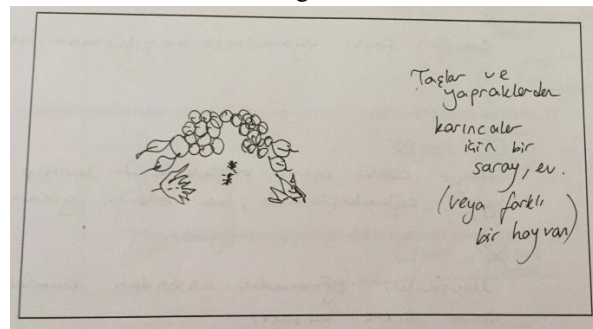 Taşlar ve
yapraklardan
karıncalar
için bir
saray, ev.
(veya farklı
bir hayvan)